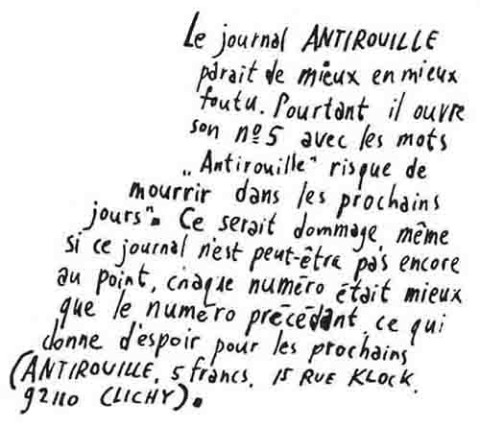 Le journal ANTIROUILLE
parait de mieux en mieux
foutu. Pourtant il ouvre
son nº5 avec les mots
„Antirouille" risque de
mourrir dans les prochains
jours". Ce serait dommage, même
si ce journal n'est peut-être pas encore
au point, chaque numéro était mieux
que le numéro précédant, ce qui
donne d'espoir pour les prochains
(ANTIROUILLE, 5 francs, 15 RUE KLOCK,
92110 CLICHY).